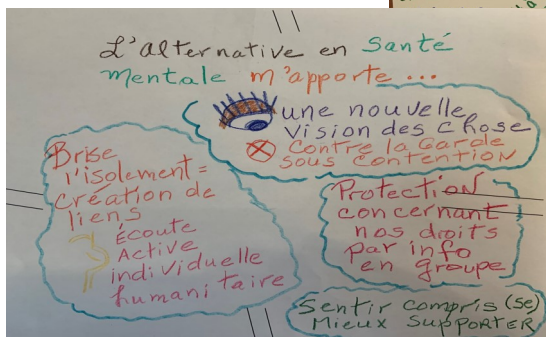 L'alternative en Santé
mentale m'apporte ...
une nouvelle
vision des chose
Contre la Garde
sous contention
Brise
l'isolement =
Création de
liens
Écoute
Active
individuelle
humanitaire
Protection
concernant
nos droits
par info
en groupe
Sentir compris (se)
Mieux SUPPORTER